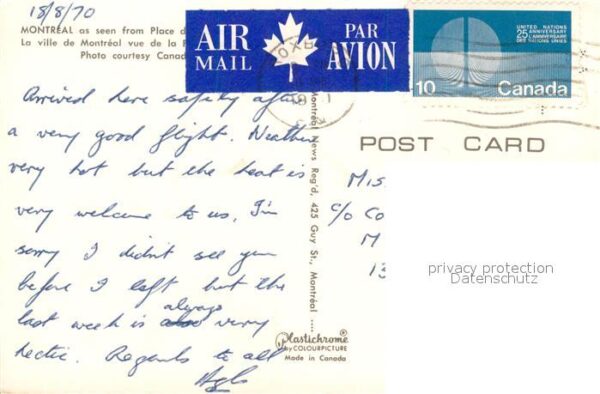 18/8/70
MONTRÉAL as seen from Place d
La ville de Montréal vue de la P
Photo courtesy Canad
AIR MAIL
PAR AVION
UNITED NATIONS
25e ANNIVERSAIRE
DES NATIONS UNIES
10 Canada
POST CARD
Arrived here safely after
a very good flight. Weather
very hot but the heat is
very welcome to us. I'm
sorry I didn't see you
before I left but the
last week is always very
hectic. Regards to all
Montréal News Reg'd, 425 Guy St., Montréal
Plastichrome
by COLOURPICTURE
Made in Canada
Mis
c/o Co
M
13
privacy protection
Datenschutz